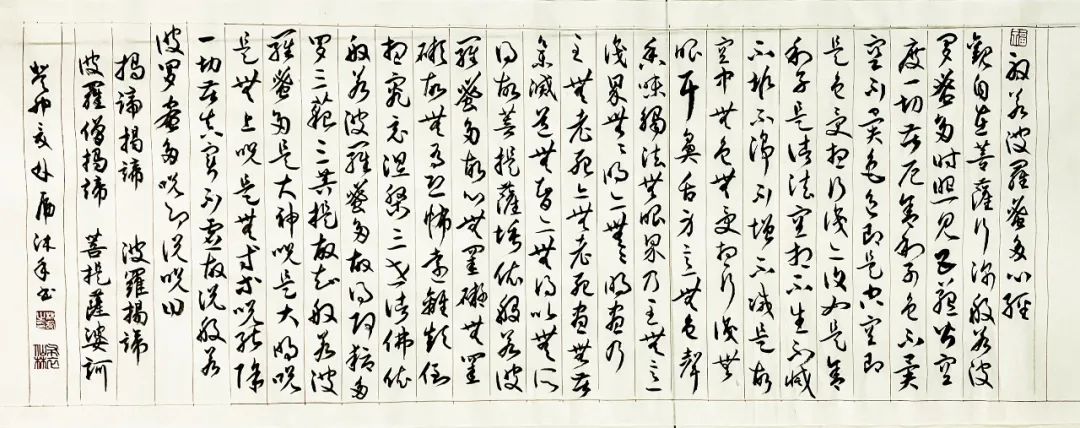 般若波羅蜜多心經
觀自在菩薩行深般若波
罗蜜多时照见五蕴皆空
度一切苦厄舍利子色不異
空空不異色色即是空空即
是色受想行识亦復如是舍
利子是诸法空相不生不滅
不垢不淨不增不减是故
空中無色無受想行識無
眼耳鼻舌身意無色聲
香味觸法無眼界乃至無意
識界無無明亦無無明盡乃
至無老死亦無老死盡無苦
集滅道無智亦無得以無所
得故菩提薩埵依般若波
羅蜜多故心無罣礙無罣
礙故無有恐怖遠離顛倒
想究竟涅槃三世诸佛依
般若波羅蜜多故得阿耨多
罗三藐三菩提故知般若波
羅蜜多是大神咒是大明咒
是無上咒是無等等咒能除
一切苦真實不虚故说般若
波罗蜜多咒即说咒曰
揭諦揭諦 波羅揭諦
波羅僧揭諦 菩提薩婆訶
癸卯夏 沐手书